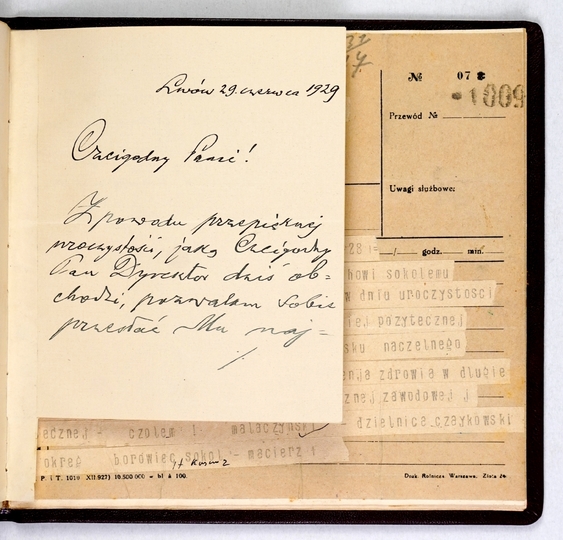 Lwów 29. czerwca 1929
Czcigodny Panie!
Z powodu przepięknej
uroczystości, jaką Czcigodny
Pan Dyrektor dziś ob=
chodzi, pozwalam sobie
przesłać Mu naj=
./.
№ 07
1009
Przewód №
Uwagi służbowe:
28 1= godz. min.
howi sokolemu
w dniu uroczystosci
iej pozytecznej
sku naczelnego
enja zdrowia w dlugie
znej zawodowej j
dzielnice czaykowski
ecznej - czolem ! - malaczynski
okreg borowiec sokol - macierz +
P. i T. 1010 XII.927) 10.500.000 — bl à 100.
Druk. Rolnicza. Warszawa. Złota 24.